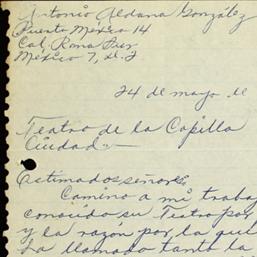 Antonio Aldana González
Puente México 14
Col. Roma Sur
México 7, D.F
24 de mayo de
Teatro de la Capilla
Ciudad.-
Estimados señores
Camino a mi trabaj
conocido su Teatro por
y la razón por la qul
ha llamado tanto la